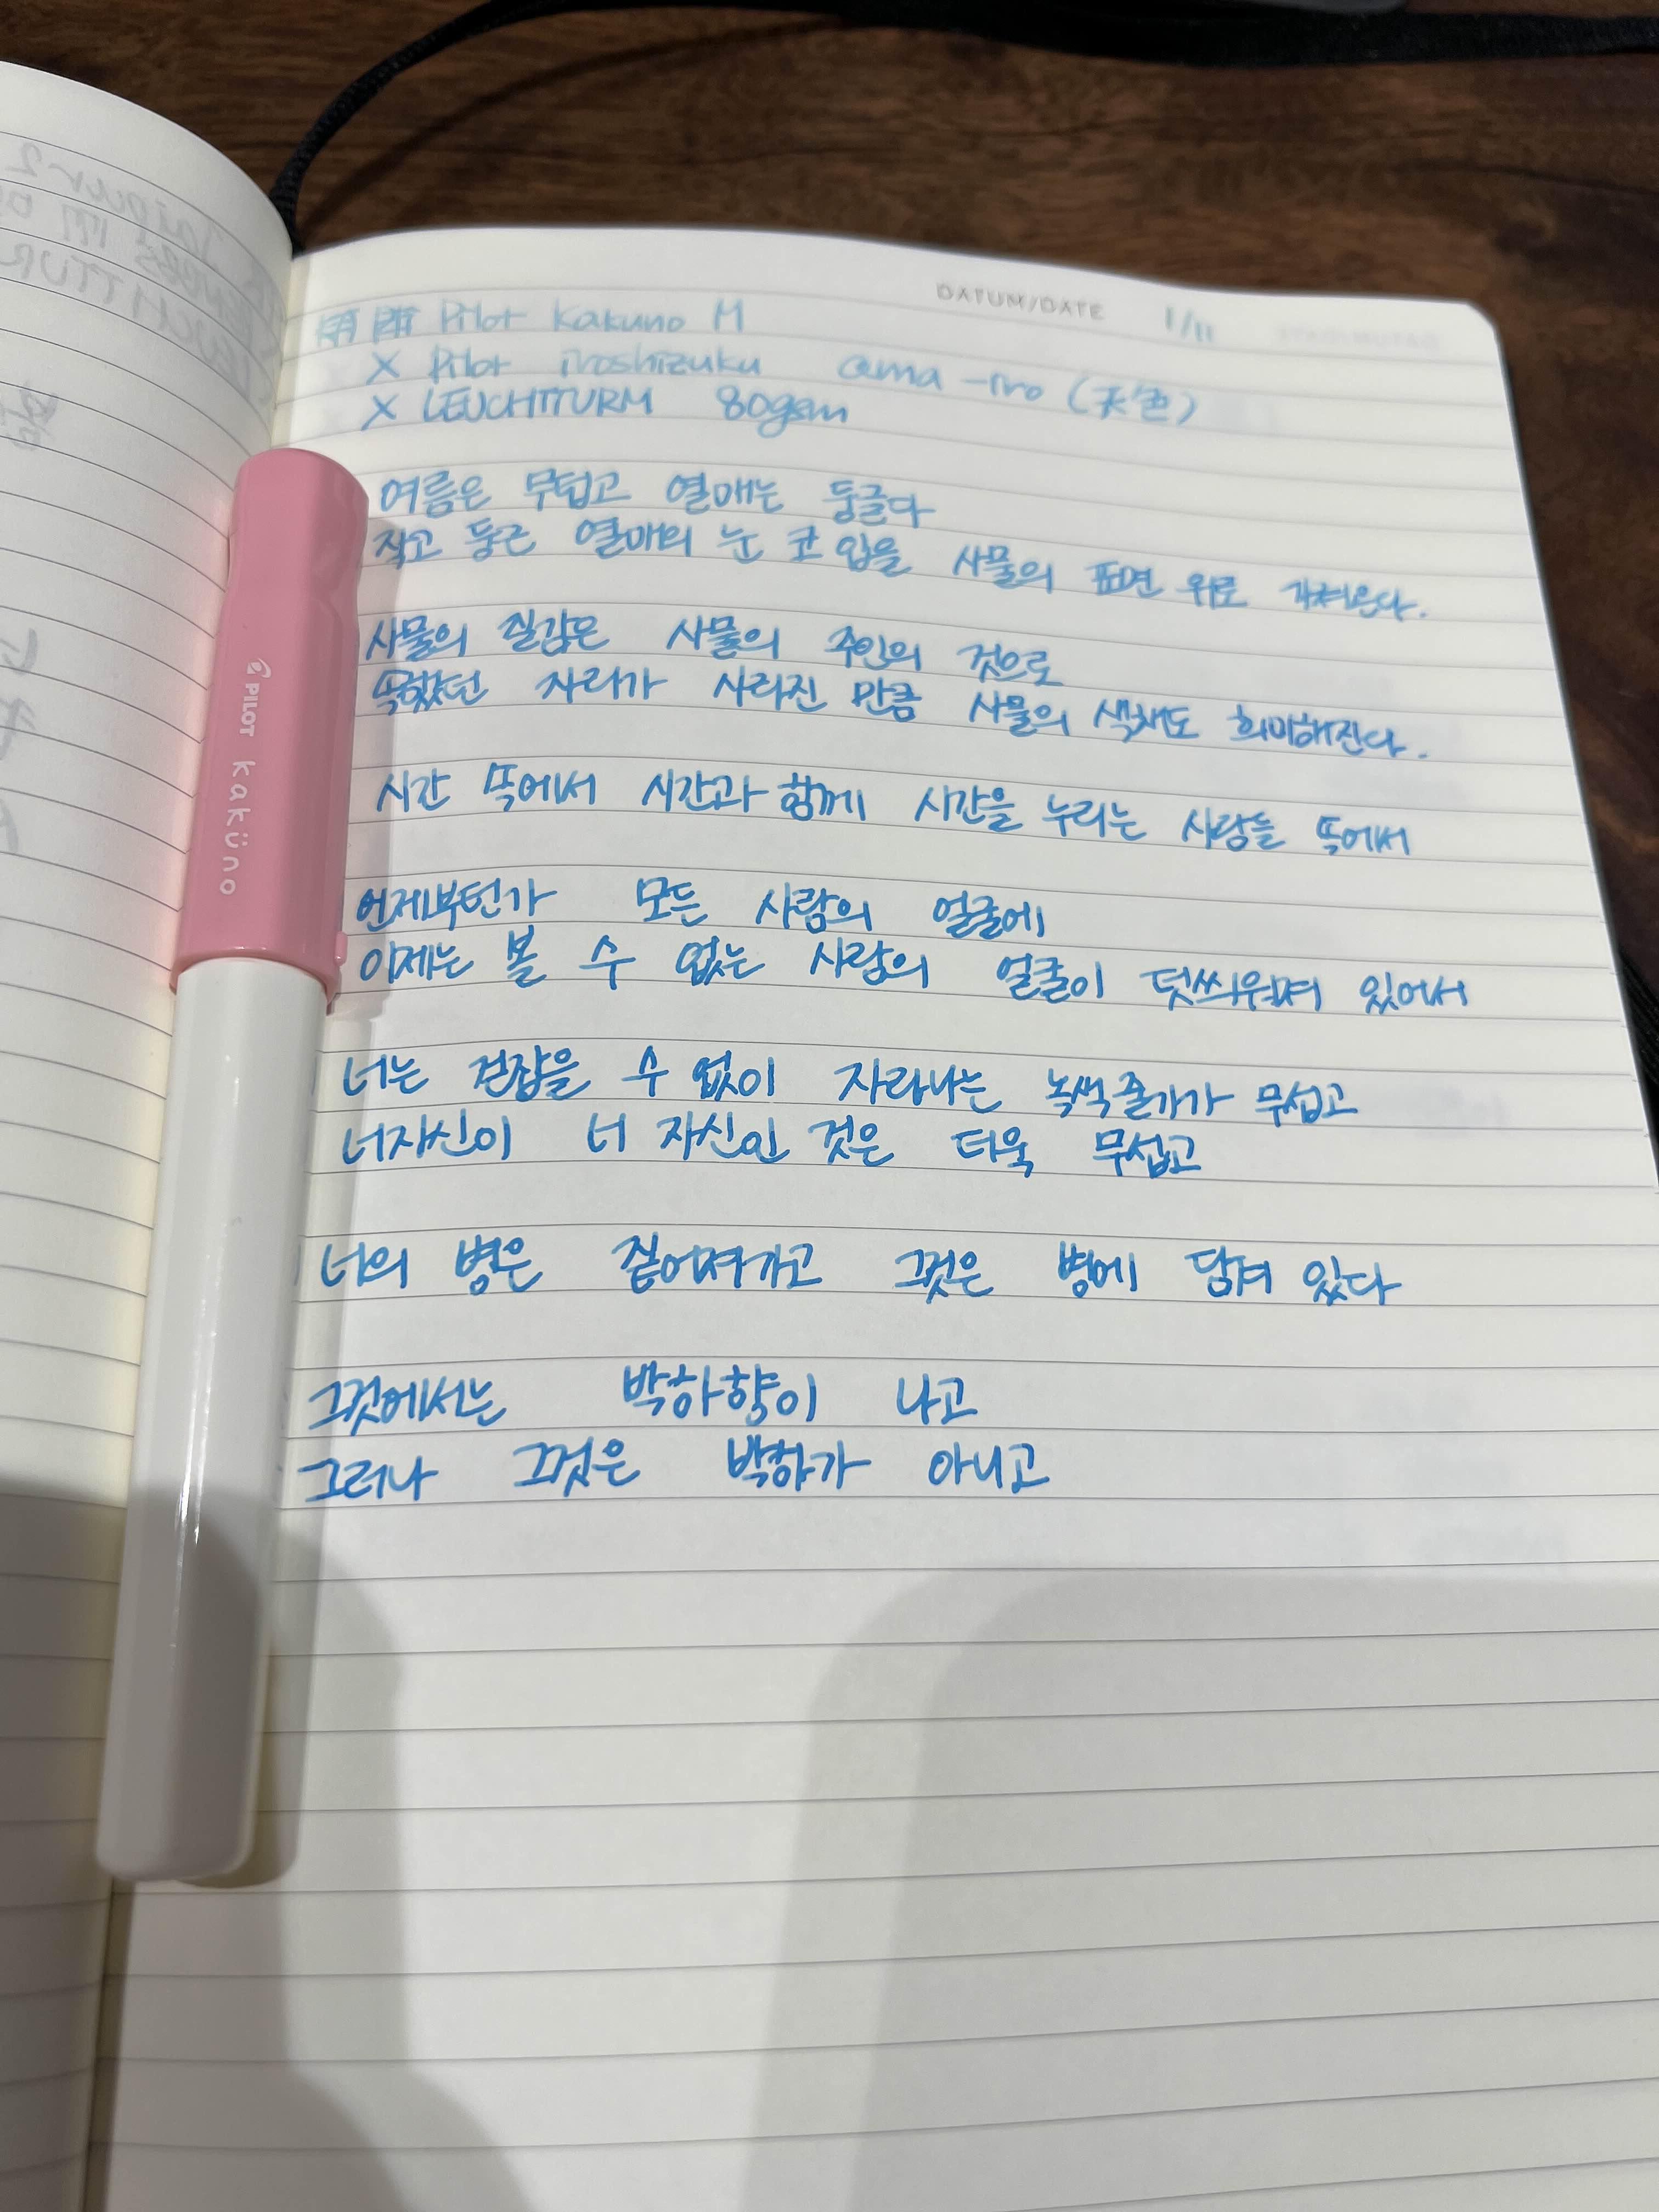 DATUM/DATE 1/11
Pilot Kakuno M
X Pilot iroshizuku ama-iro (天色)
X LEUCHTTURM 80gsm
여름은 무덥고 열매는 둥글다
작고 둥근 열매의 눈 코 입을 사물의 표면 위로 가져온다.
사물의 질감은 사물의 주인의 것으로
속했던 자리가 사라진 만큼 사물의 색채도 희미해진다.
시간 속에서 시간과 함께 시간을 누리는 사람들 속에서
언제부턴가 모든 사람의 얼굴에
이제는 볼 수 없는 사람의 얼굴이 덧씌워져 있어서
너는 걷잡을 수 없이 자라나는 녹색 줄기가 무섭고
너자신이 너 자신인 것은 더욱 무섭고
너의 병은 짙어져가고 그것은 병에 담겨 있다
그것에서는 박하향이 나고
그러나 그것은 박하가 아니고
PILOT kaküno